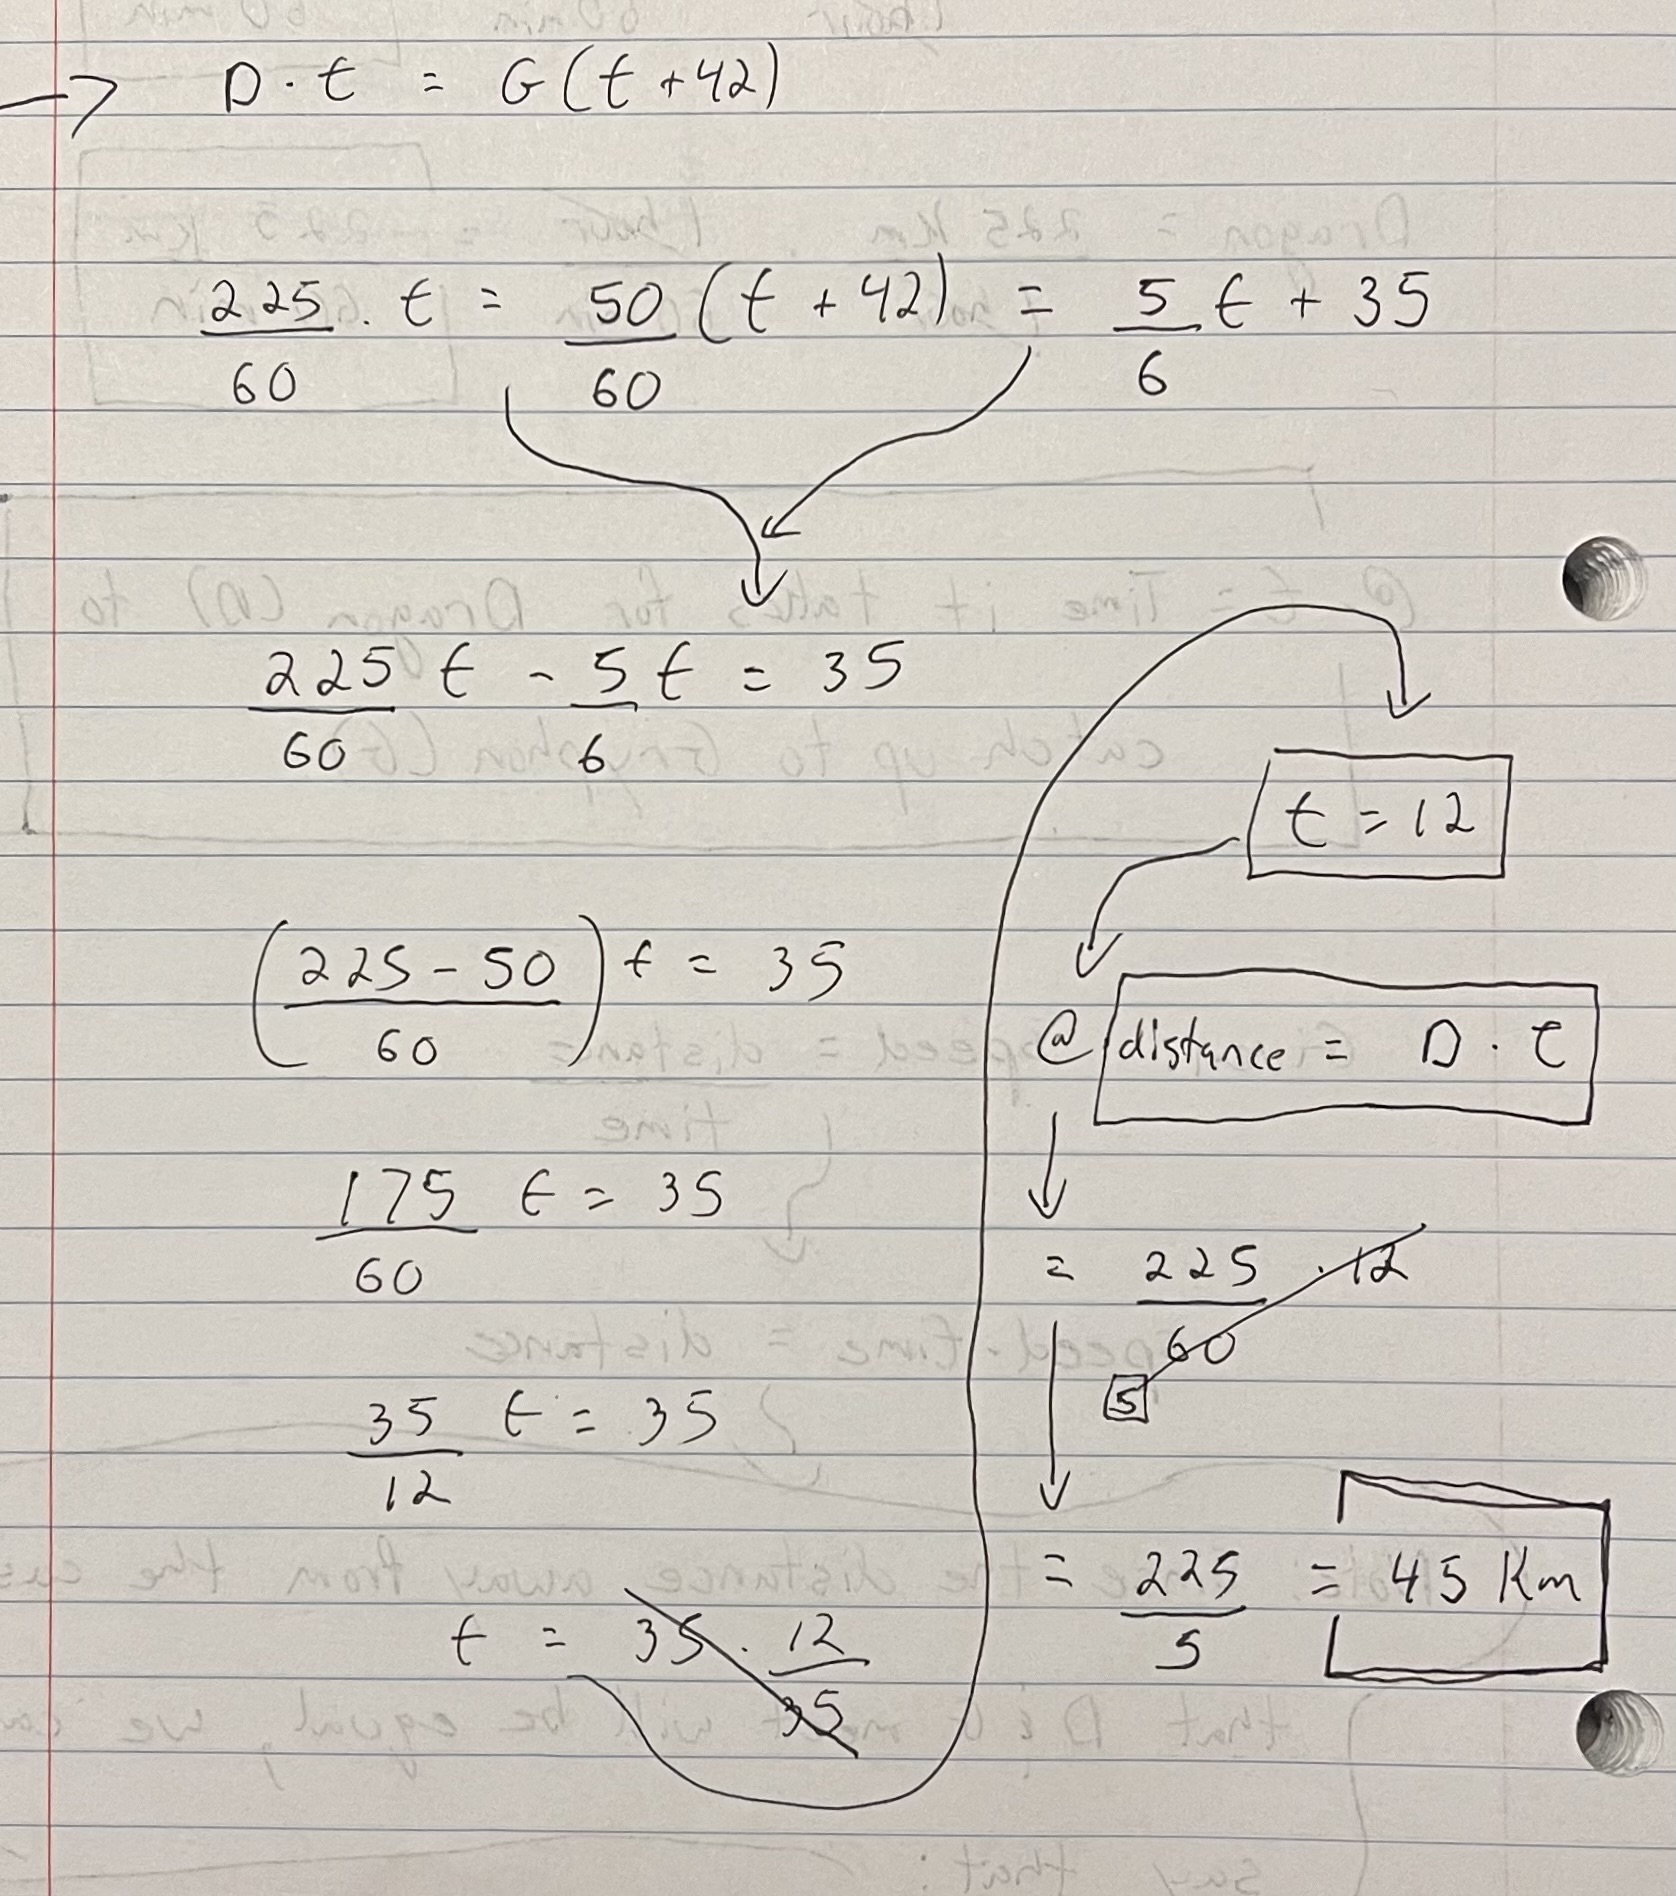 → D · t = G(t + 42)
225/60 · t = 50/60 (t + 42) = 5/6 t + 35
225/60 t - 5/6 t = 35
((225 - 50)/60) t = 35
175/60 t = 35
35/12 t = 35
t = 35 · 12/35
t = 12
@ distance = D · t
= 225/60 · 12
5
= 225/5 = 45 Km